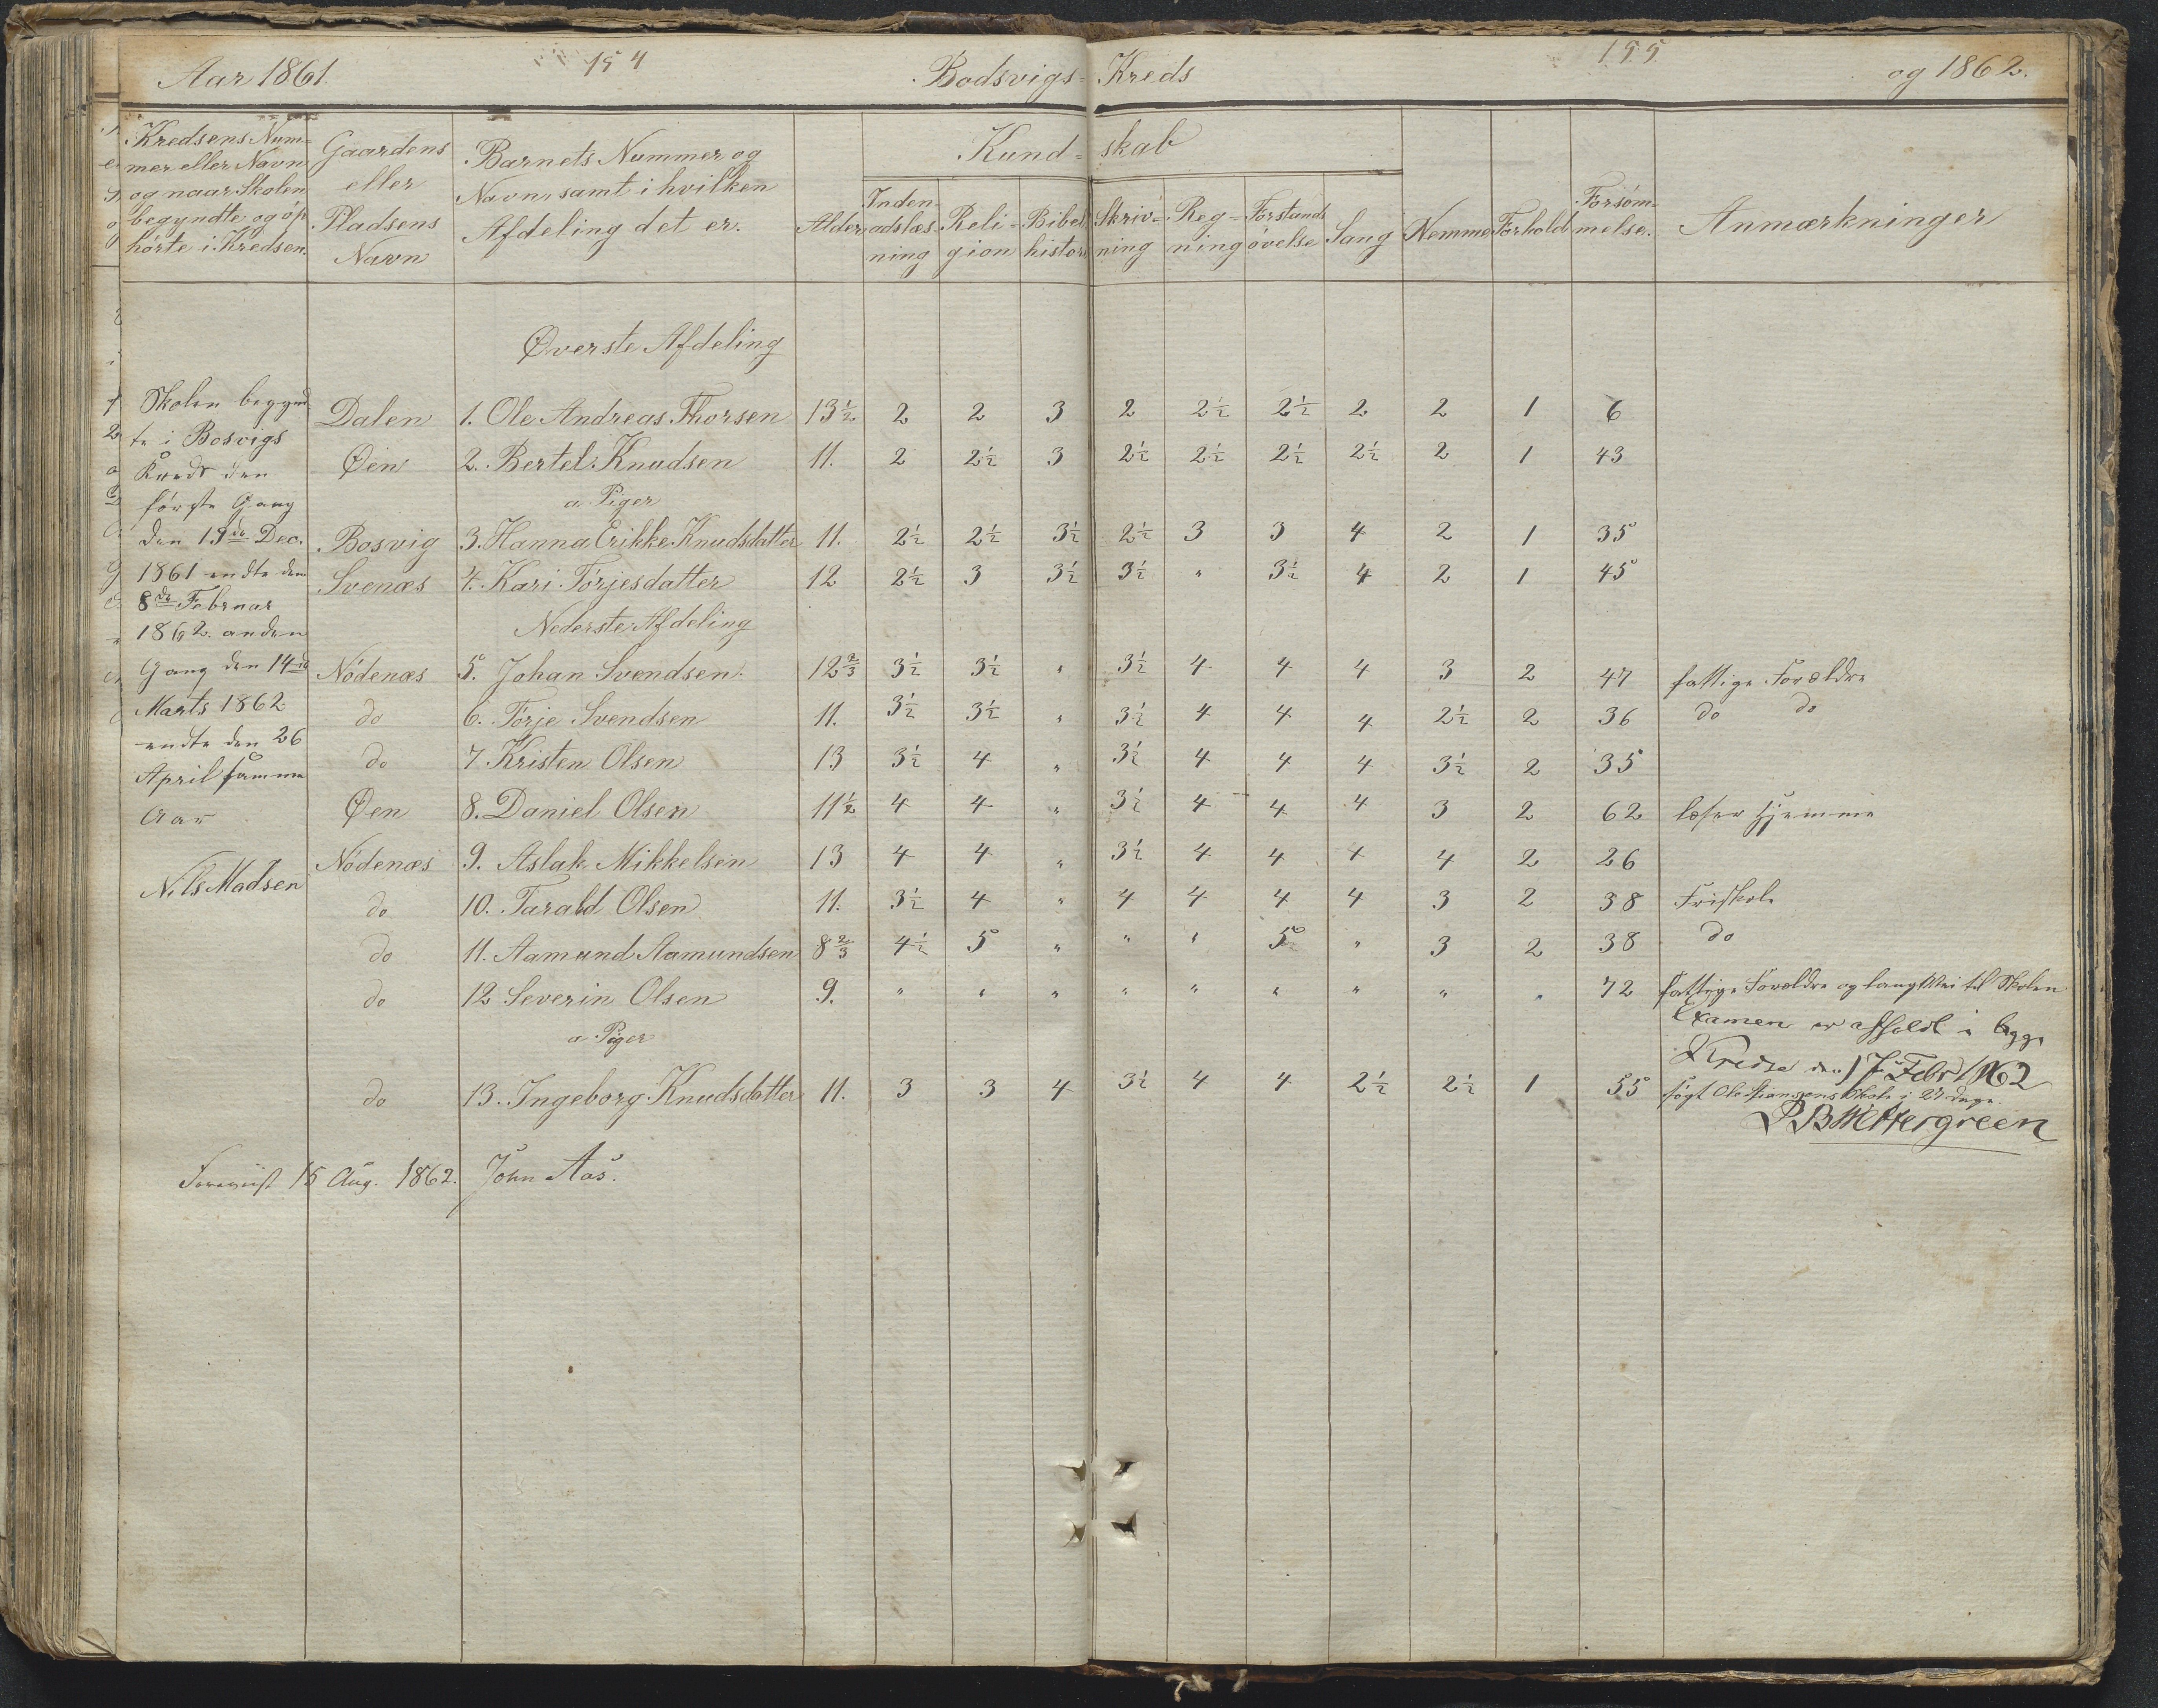 154
155
Aar 1861. Bodsvigs- Kreds og 1862.
Kredsens Num-
mer eller Navn
og naar Skolen
begyndte og op
hørte i Kredsen.
Gaardens
eller
Pladsens
Navn
Barnets Nummer og
Navn, samt i hvilken
Afdeling det er.
Alder
Kund- skab
Inden-
adslæs-
ning
Reli-
gion
Bibel
histori
Skriv-
ning
Reg-
ning
Forstands
øvelse
Sang
Nemme
Forhold
Forsøm-
melse.
Anmærkninger
Skolen begynd-
te i Bosvigs
Kreds den
første Gang
den 19de Dec.
1861 endte den
8de Februar
1862. anden
Gang den 14de
Marts 1862
endte den 26
April samme
Aar
Nils Madsen
Øverste Afdeling
Dalen 1. Ole Andreas Thorsen 13½ 2 2 3 2 2½ 2½ 2 2 1 6
Øen 2. Bertel Knudsen 11. 2 2½ 3 2½ 2½ 2½ 2½ 2 1 43
a Piger
Bosvig 3. Hanna Erikke Knudsdatter 11. 2½ 2½ 3½ 2½ 3 3 4 2 1 35
Svenæs 4. Kari Tørjesdatter 12 2½ 3 3½ 3½ " 3½ 4 2 1 45
Nederste Afdeling
Nødenæs 5. Johan Svendsen 12⅔ 3½ 3½ " 3½ 4 4 4 3 2 47 fattige Forældre
do 6. Tørje Svendsen 11. 3½ 3½ " 3½ 4 4 4 2½ 2 36 do do
do 7 Kristen Olsen 13 3½ 4 " 3½ 4 4 4 3½ 2 35
Øen 8. Daniel Olsen 11½ 4 4 " 3½ 4 4 4 3 2 62 læser hjemme
Nødenæs 9. Aslak Mikkelsen 13 4 4 " 3½ 4 4 4 4 2 26
do 10. Tarald Olsen 11. 3½ 4 " 4 4 4 4 3 2 38 Friskole
do 11. Aamund Aamundsen 8⅔ 4½ 5 " " " 5 " 3 2 38 do
do 12 Severin Olsen 9. " " " " " " " " " 72 fattige Forældre og lang Vei til Skolen
a Piger
Examen er afholdt i begge
Kredse den 17 Febr 1862
do 13. Ingeborg Knudsdatter 11. 3 3 4 3½ 4 4 2½ 2½ 1 55 søgt Ole Skole i 27 Dage.
P B Wettergreen
Foreviist 15 Aug. 1862. John Aas.